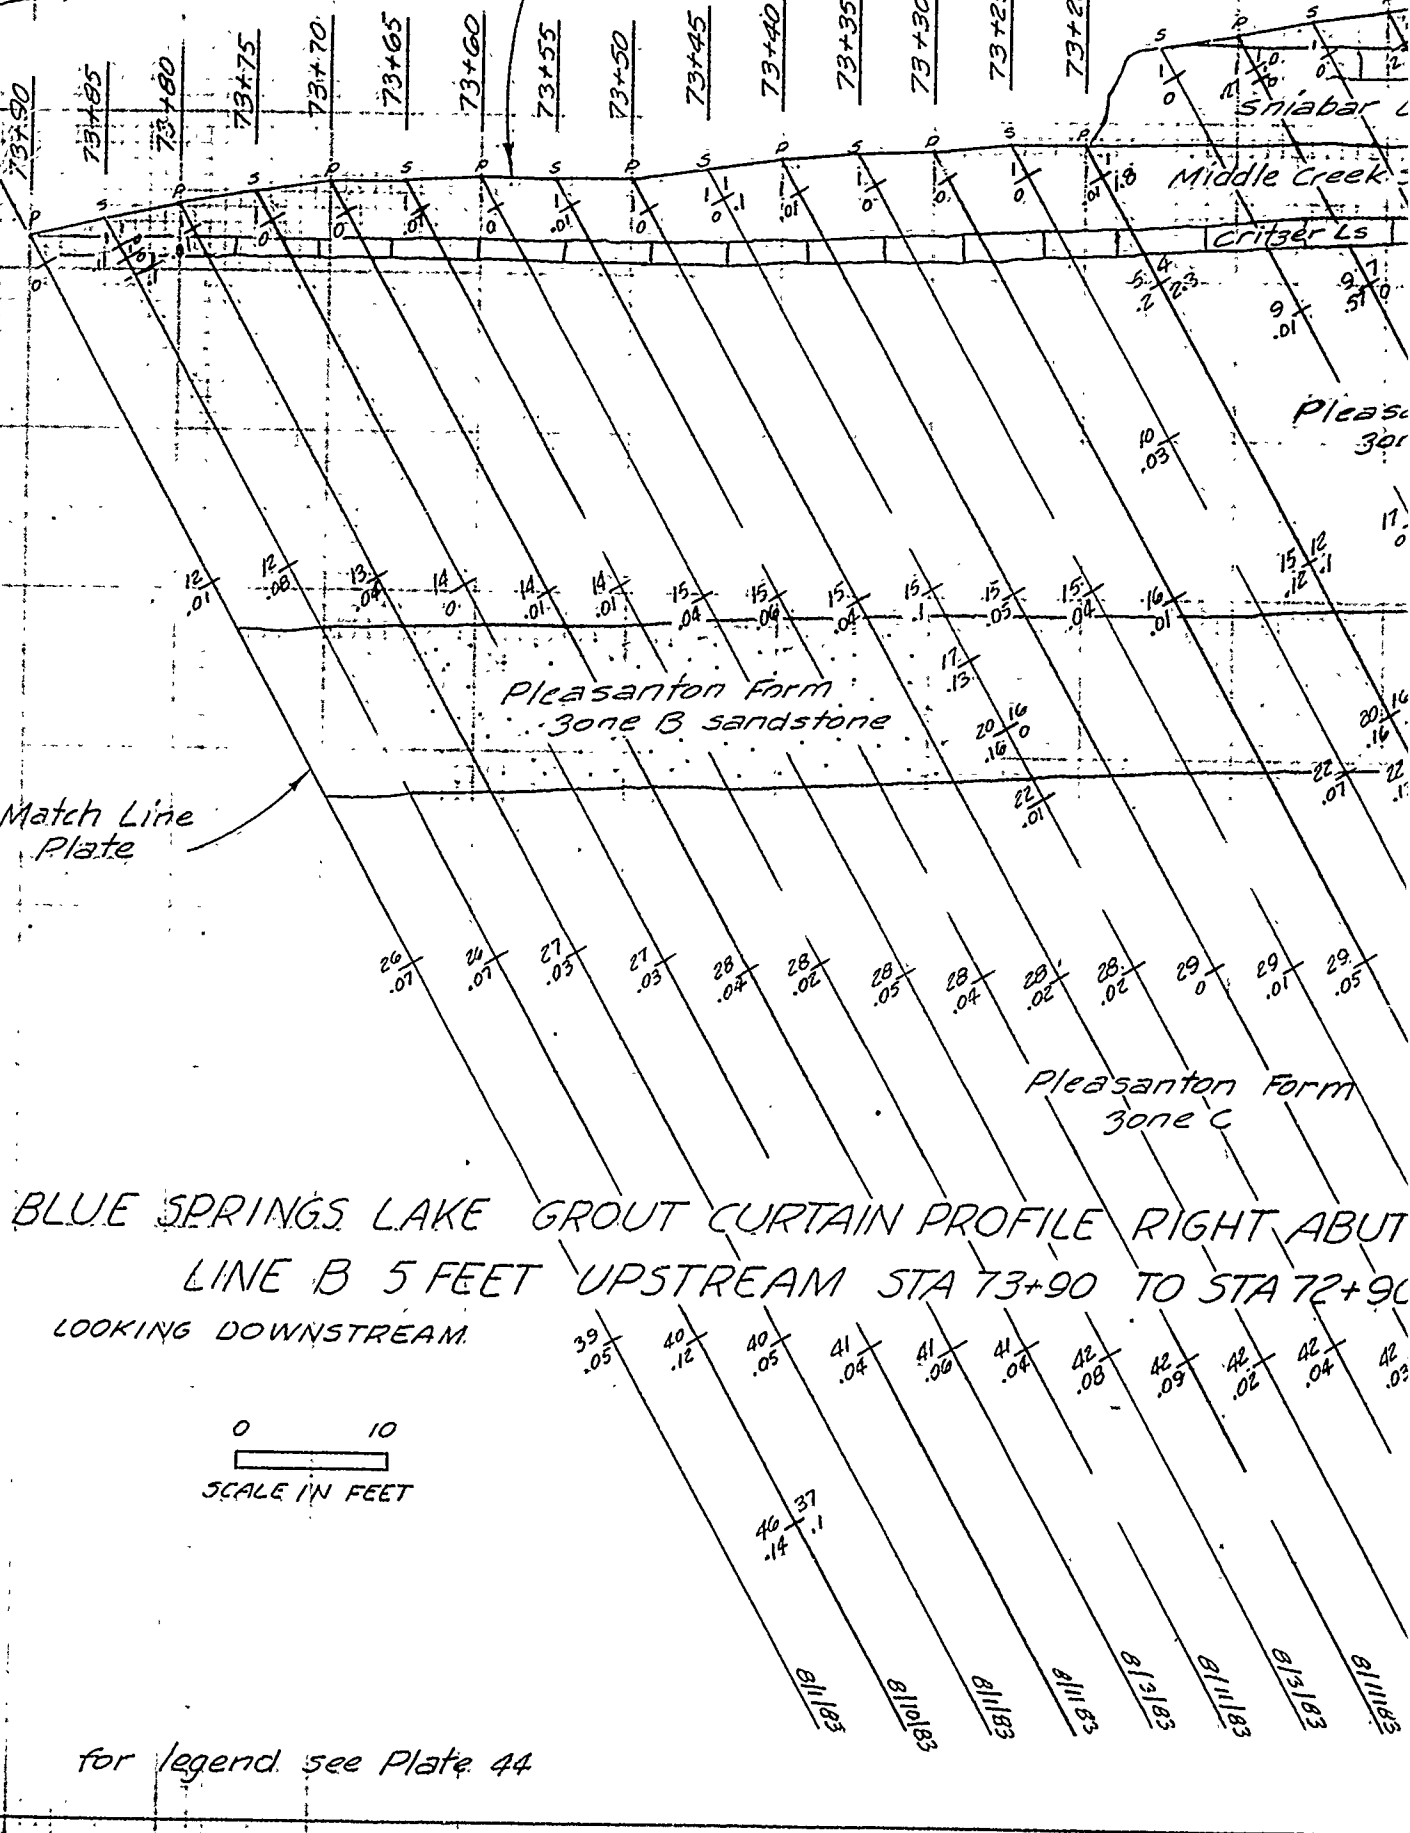 73+90
73+85
73+80
73+75
73+70
73+65
73+60
73+55
73+50
73+45
73+40
73+35
73+30
Sniabar
Middle Creek
Critzer Ls
P S P S P S P S P S P S P S P
S P S
1.8
5 4
.2 2.3
9
.01
9 7
.51 0
10
.03
17
0
12
.01
12
.08
13
.04
14
0
14
.01
14
.01
15
.04
15
.06
15
.04
15
.1
15
.05
15
.04
16
.01
15 12
.12 .1
Pleasanton Form
Zone B sandstone
17
.13
20 16
.16 0
22
.01
20 16
.16
22
.07
Match Line
Plate
26
.07
26
.07
27
.03
27
.03
28
.04
28
.02
28
.05
28
.04
28
.02
28
.02
29
0
29
.01
29
.05
Pleasanton Form
Zone C
BLUE SPRINGS LAKE GROUT CURTAIN PROFILE RIGHT ABUT
LINE B 5 FEET UPSTREAM STA 73+90 TO STA 72+90
LOOKING DOWNSTREAM
39
.05
40
.12
40
.05
41
.04
41
.06
41
.04
42
.08
42
.09
42
.02
42
.04
42
.03
0 10
SCALE IN FEET
46 37
.14 .1
8/1/83
8/10/83
8/1/83
8/11/83
8/3/83
8/11/83
8/3/83
8/11/83
for legend see Plate 44